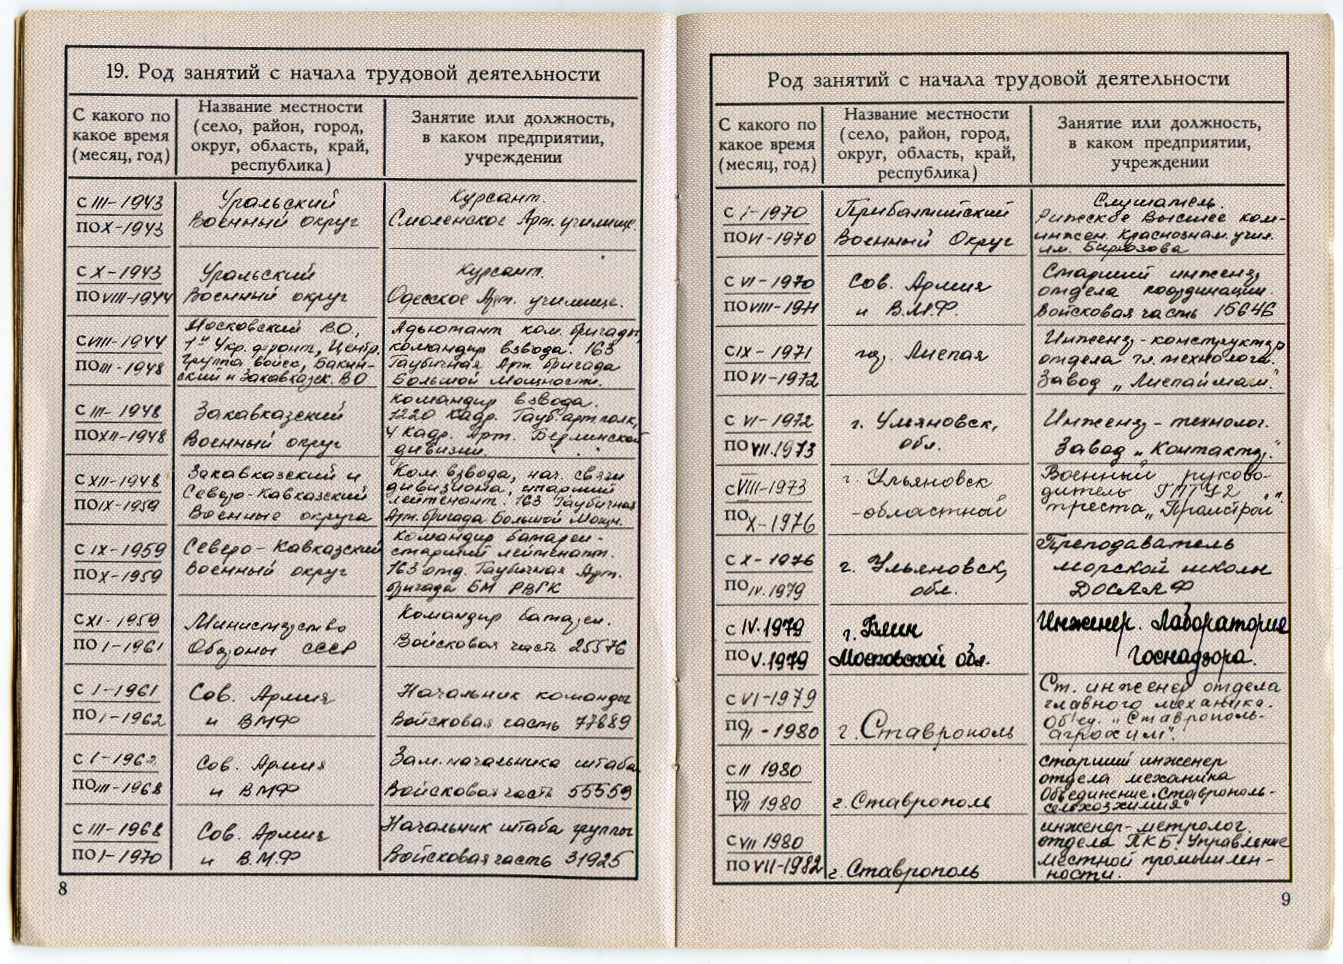 19. Род занятий с начала трудовой деятельности
С какого по
какое время
(месяц, год)
Название местности
(село, район, город,
округ, область, край,
республика)
Занятие или должность,
в каком предприятии,
учреждении
с III-1943
по X-1943
Уральский
Военный округ
Курсант.
Смоленское Арт. училище.
с X-1943
по VIII-1944
Уральский
Военный округ
Курсант.
Одесское Арт. училище.
с VIII-1944
по III-1948
Московский В.О,
1ый Укр. фронт, Центр.
группа войск, Бакин-
ский и Закавказск. ВО
Адьютант ком. бригады,
командир взвода. 163
Гаубичная Арт. бригада
Большой Мощности.
с III-1948
по XII-1948
Закавказский
Военный округ
Командир взвода.
1220 Кадр. Гауб. арт полк,
4 Кадр. Арт. Берлинской
дивизии.
с XII-1948
по IX-1959
Закавказский и
Северо-Кавказский
Военные округа
Ком. взвода, нач. связи
дивизиона, старший
лейтенант. 163 Гаубичная
Арт. бригада Большой Мощн.
с IX-1959
по X-1959
Северо-Кавказский
Военный округ
Командир батареи-
старший лейтенант.
163 отд. Гаубичная Арт.
бригада БМ РВГК
с XI-1959
по I-1961
Министерство
Обороны СССР
Командир батареи.
Войсковая часть 25576
с I-1961
по I-1962
Сов. Армия
и ВМФ
Начальник команды
Войсковая часть 77889
с I-1962
по III-1968
Сов. Армия
и ВМФ
Зам. начальника штаба
Войсковая часть 55559
с III-1968
по I-1970
Сов. Армия
и В.М.Ф
Начальник штаба группы
Войсковая часть 31925
8
Род занятий с начала трудовой деятельности
С какого по
какое время
(месяц, год)
Название местности
(село, район, город,
округ, область, край,
республика)
Занятие или должность,
в каком предприятии,
учреждении
с I-1970
по VI-1970
Прибалтийский
Военный Округ
Слушатель.
Рижское Высшее ком-
инжен. Краснознам. учил.
им. Бирюзова
с VI-1970
по VIII-1971
Сов. Армия
и В.М.Ф.
Старший инженер
отдела координации.
Войсковая часть 15646
с IX-1971
по VI-1972
гор. Лиепая
Инженер-конструктор
отдела гл. технолога.
Завод „Лиепаймаш."
с VI-1972
по VII.1973
г. Ульяновск,
обл.
Инженер-технолог.
Завод „Контактор."
с VIII-1973
по X-1976
г. Ульяновск
-областной
Военный руково-
дитель ГПТУ2
треста „Промстрой"
с X-1976
по IV.1979
г. Ульяновск,
обл.
Преподаватель
морской школы
ДОСААФ
с IV.1979
по V.1979
г. Клин
Московской обл.
Инженер. Лаборатория
Госнадзора.
с VI-1979
по II-1980
г. Ставрополь
Ст. инженер отдела
главного механика.
Об'ед. „Ставрополь-
агрохим".
с II 1980
по VII 1980
г. Ставрополь
старший инженер
отдела механика
Объединение „Ставрополь-
сельхозхимия"
с VII 1980
по VII-1982
г. Ставрополь
инженер-метролог.
отдела ПКБ. Управление
местной промышлен-
ности.
9